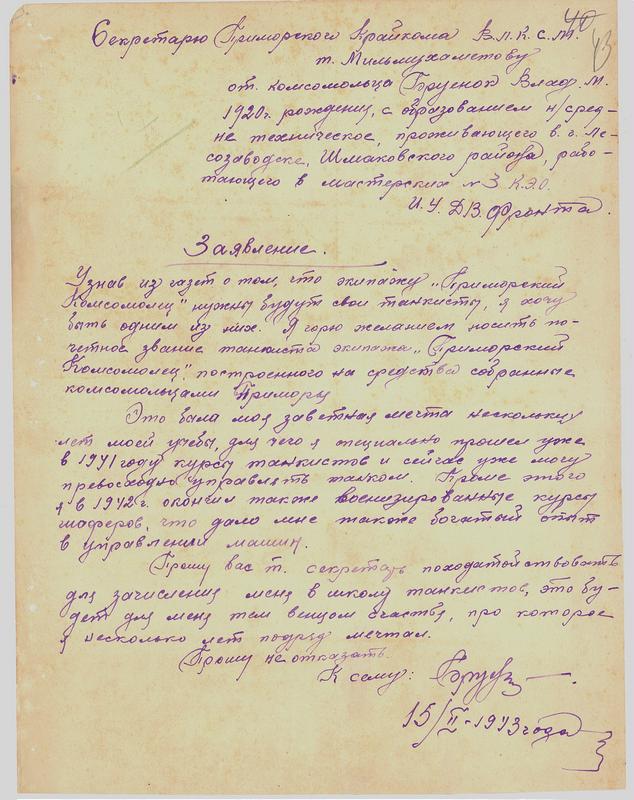 Секретарю Приморского Крайкома В.Л.К.С.М.
40
43
т. Мильмухаметову
от комсомольца Бруенок Влад. М.
1920г. рождения, с образованием н/сред-
не техническое, проживающего в г. Ле-
созаводске, Шмаковского района, рабо-
тающего в мастерских №3 К.Э.О.
И.У. Д.В. фронта.
Заявление.
Узнав из газет о том, что экипажу „Приморский
Комсомолец" нужны будут свои танкисты, я хочу
быть одним из них. Я горю желанием носить по-
четное звание танкиста экипажа „Приморский
Комсомолец" построенного на средства собранные
комсомольцами Приморья
Это была моя заветная мечта несколько
лет моей учебы, для чего я специально прошел уже
в 1941 году курсы танкистов и сейчас уже могу
превосходно управлять танком. Кроме этого
я в 1942 г. окончил также военизированные курсы
шоферов, что дало мне также богатый опыт
в управлении машин.
Прошу вас т. секретарь походатойствовать
для зачисления меня в школу танкистов, это бу-
дет для меня тем венцом счастья, про которое
я несколько лет подряд мечтал.
Прошу не отказать.
К сему:
15/II-1943 года